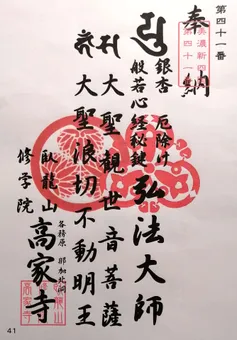 第四十一番
奉納
美濃新四国
第四十一番
銀杏 厄除け
般若心経秘鍵
弘法大師
大聖観世音菩薩
大聖浪切不動明王
各務原 那加北洞
臥龍山
高家寺
修学院
41